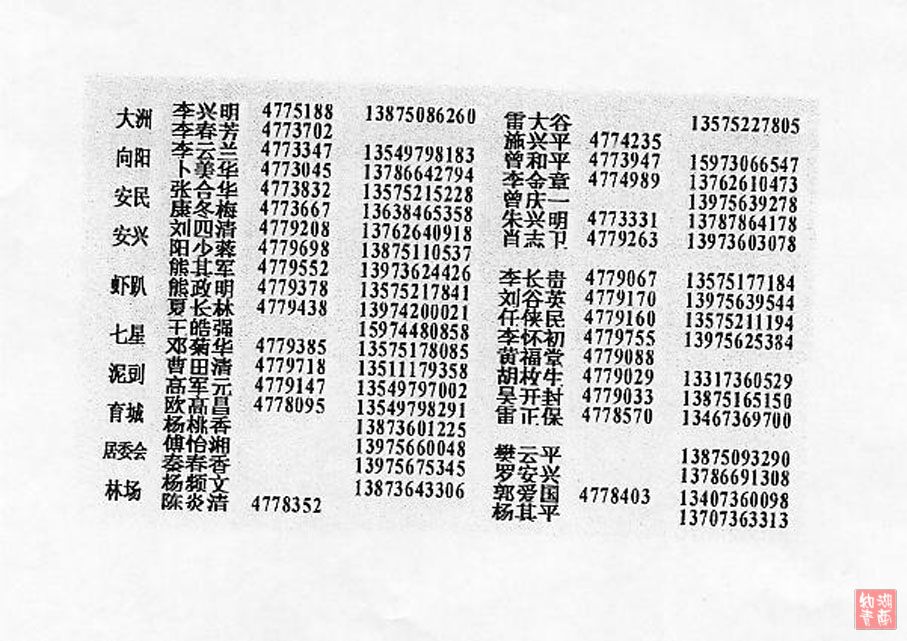 大洲 李兴明 4775188 13875086260 雷大谷 13575227805
李春芳 4773702 施兴平 4774235
向阳 李云兰 4773347 13549798183 曾和平 4773947 15973066547
卜美华 4773045 13786642794 李金章 4774989 13762610473
安民 张合华 4773832 13575215228 曾庆一 13975639278
康冬梅 4773667 13638465358 朱兴明 4773331 13787864178
安兴 刘四清 4779208 13762640918 肖志卫 4779263 13973603078
阳少蓉 4779698 13875110537
熊其军 4779552 13973624426 李长贵 4779067 13575177184
虾趴 熊政明 4779378 13575217841 刘谷英 4779170 13975639544
夏长林 4779438 13974200021 任侠民 4779160 13575211194
七星 王皓强 15974480858 李怀初 4779755 13975625384
邓菊华 4779385 13575178085 黄福堂 4779088
泥到 曹田清 4779718 13511179358 胡枚牛 4779029 13317360529
高军元 4779147 13549797002 吴开封 4779033 13875165150
育城 欧高昌 4778095 13549798291 雷正保 4778570 13467369700
杨桃香 13873601225
居委会 傅怡湘 13975660048 樊云平 13875093290
秦春香 13975675345 罗安兴 13786691308
林场 杨频文 13873643306 郭爱国 4778403 13407360098
陈炎清 4778352 杨其平 13707363313